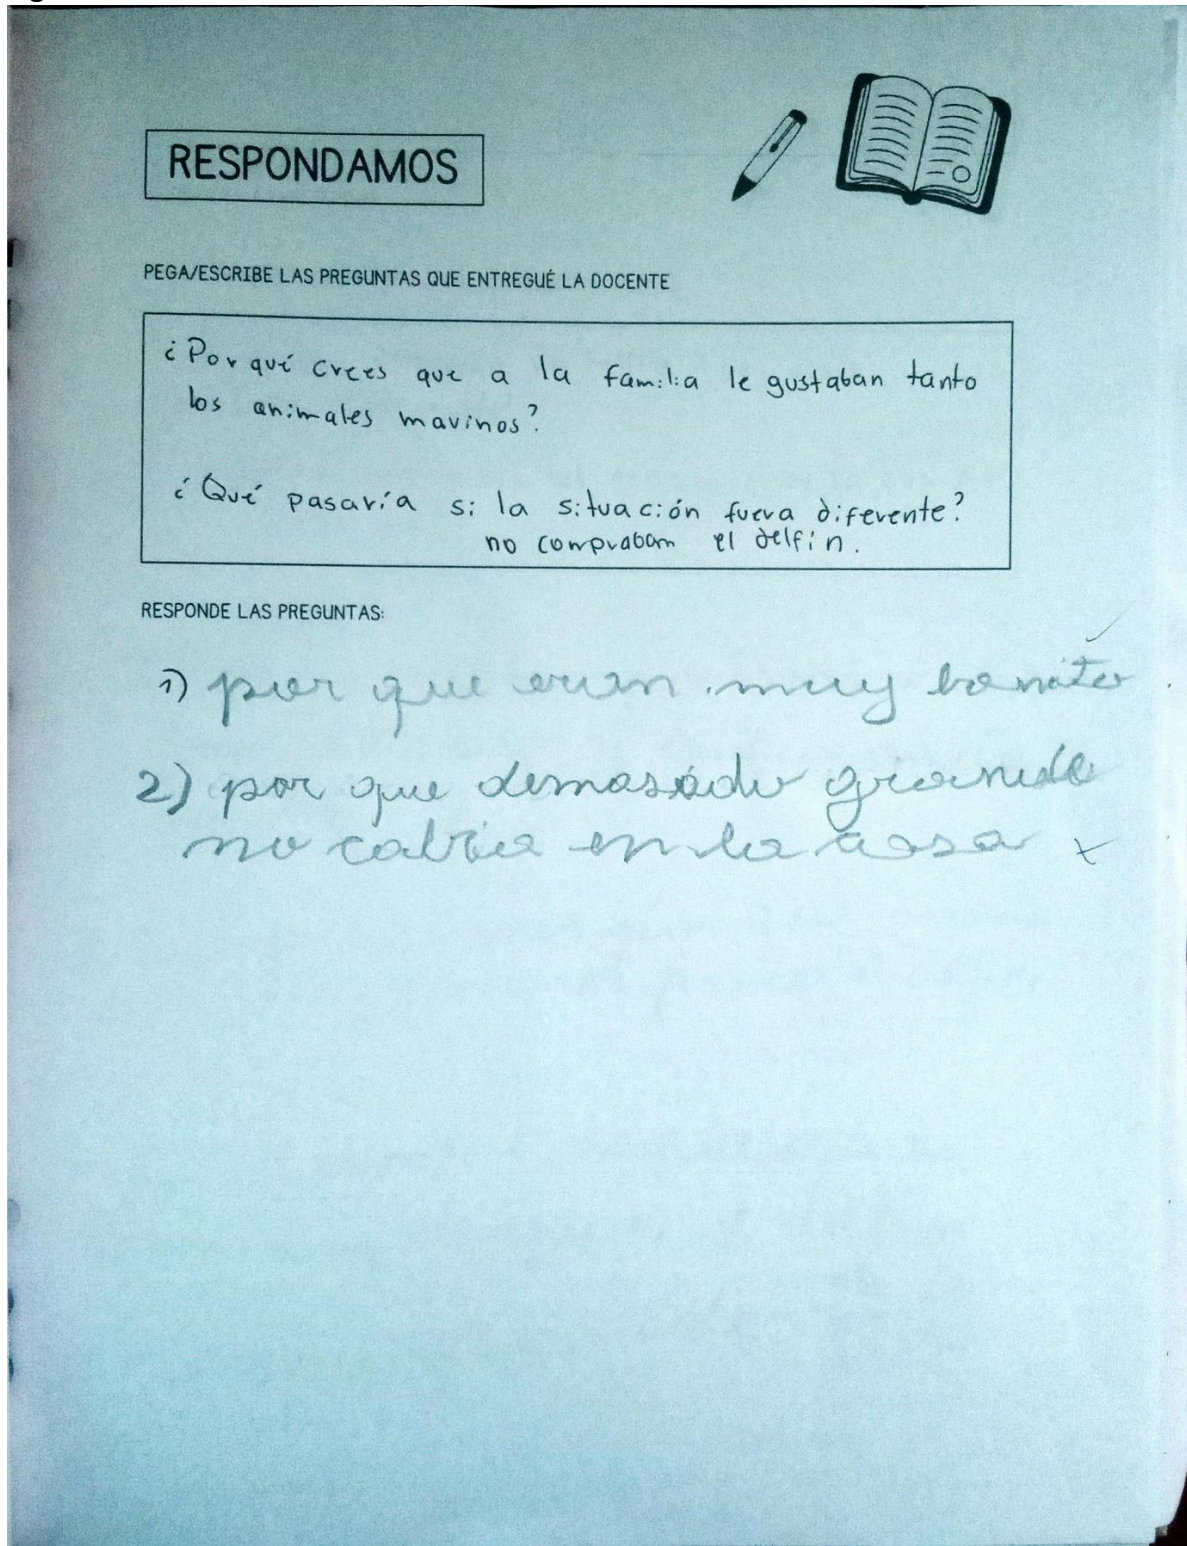 RESPONDAMOS
PEGA/ESCRIBE LAS PREGUNTAS QUE ENTREGUÉ LA DOCENTE
¿Por qué crees que a la familia le gustaban tanto
los animales marinos?
¿Qué pasaría si la situación fuera diferente?
no compraban el delfín.
RESPONDE LAS PREGUNTAS:
1) por que eran muy bonito
2) por que demasiado grande
no cabia en la casa